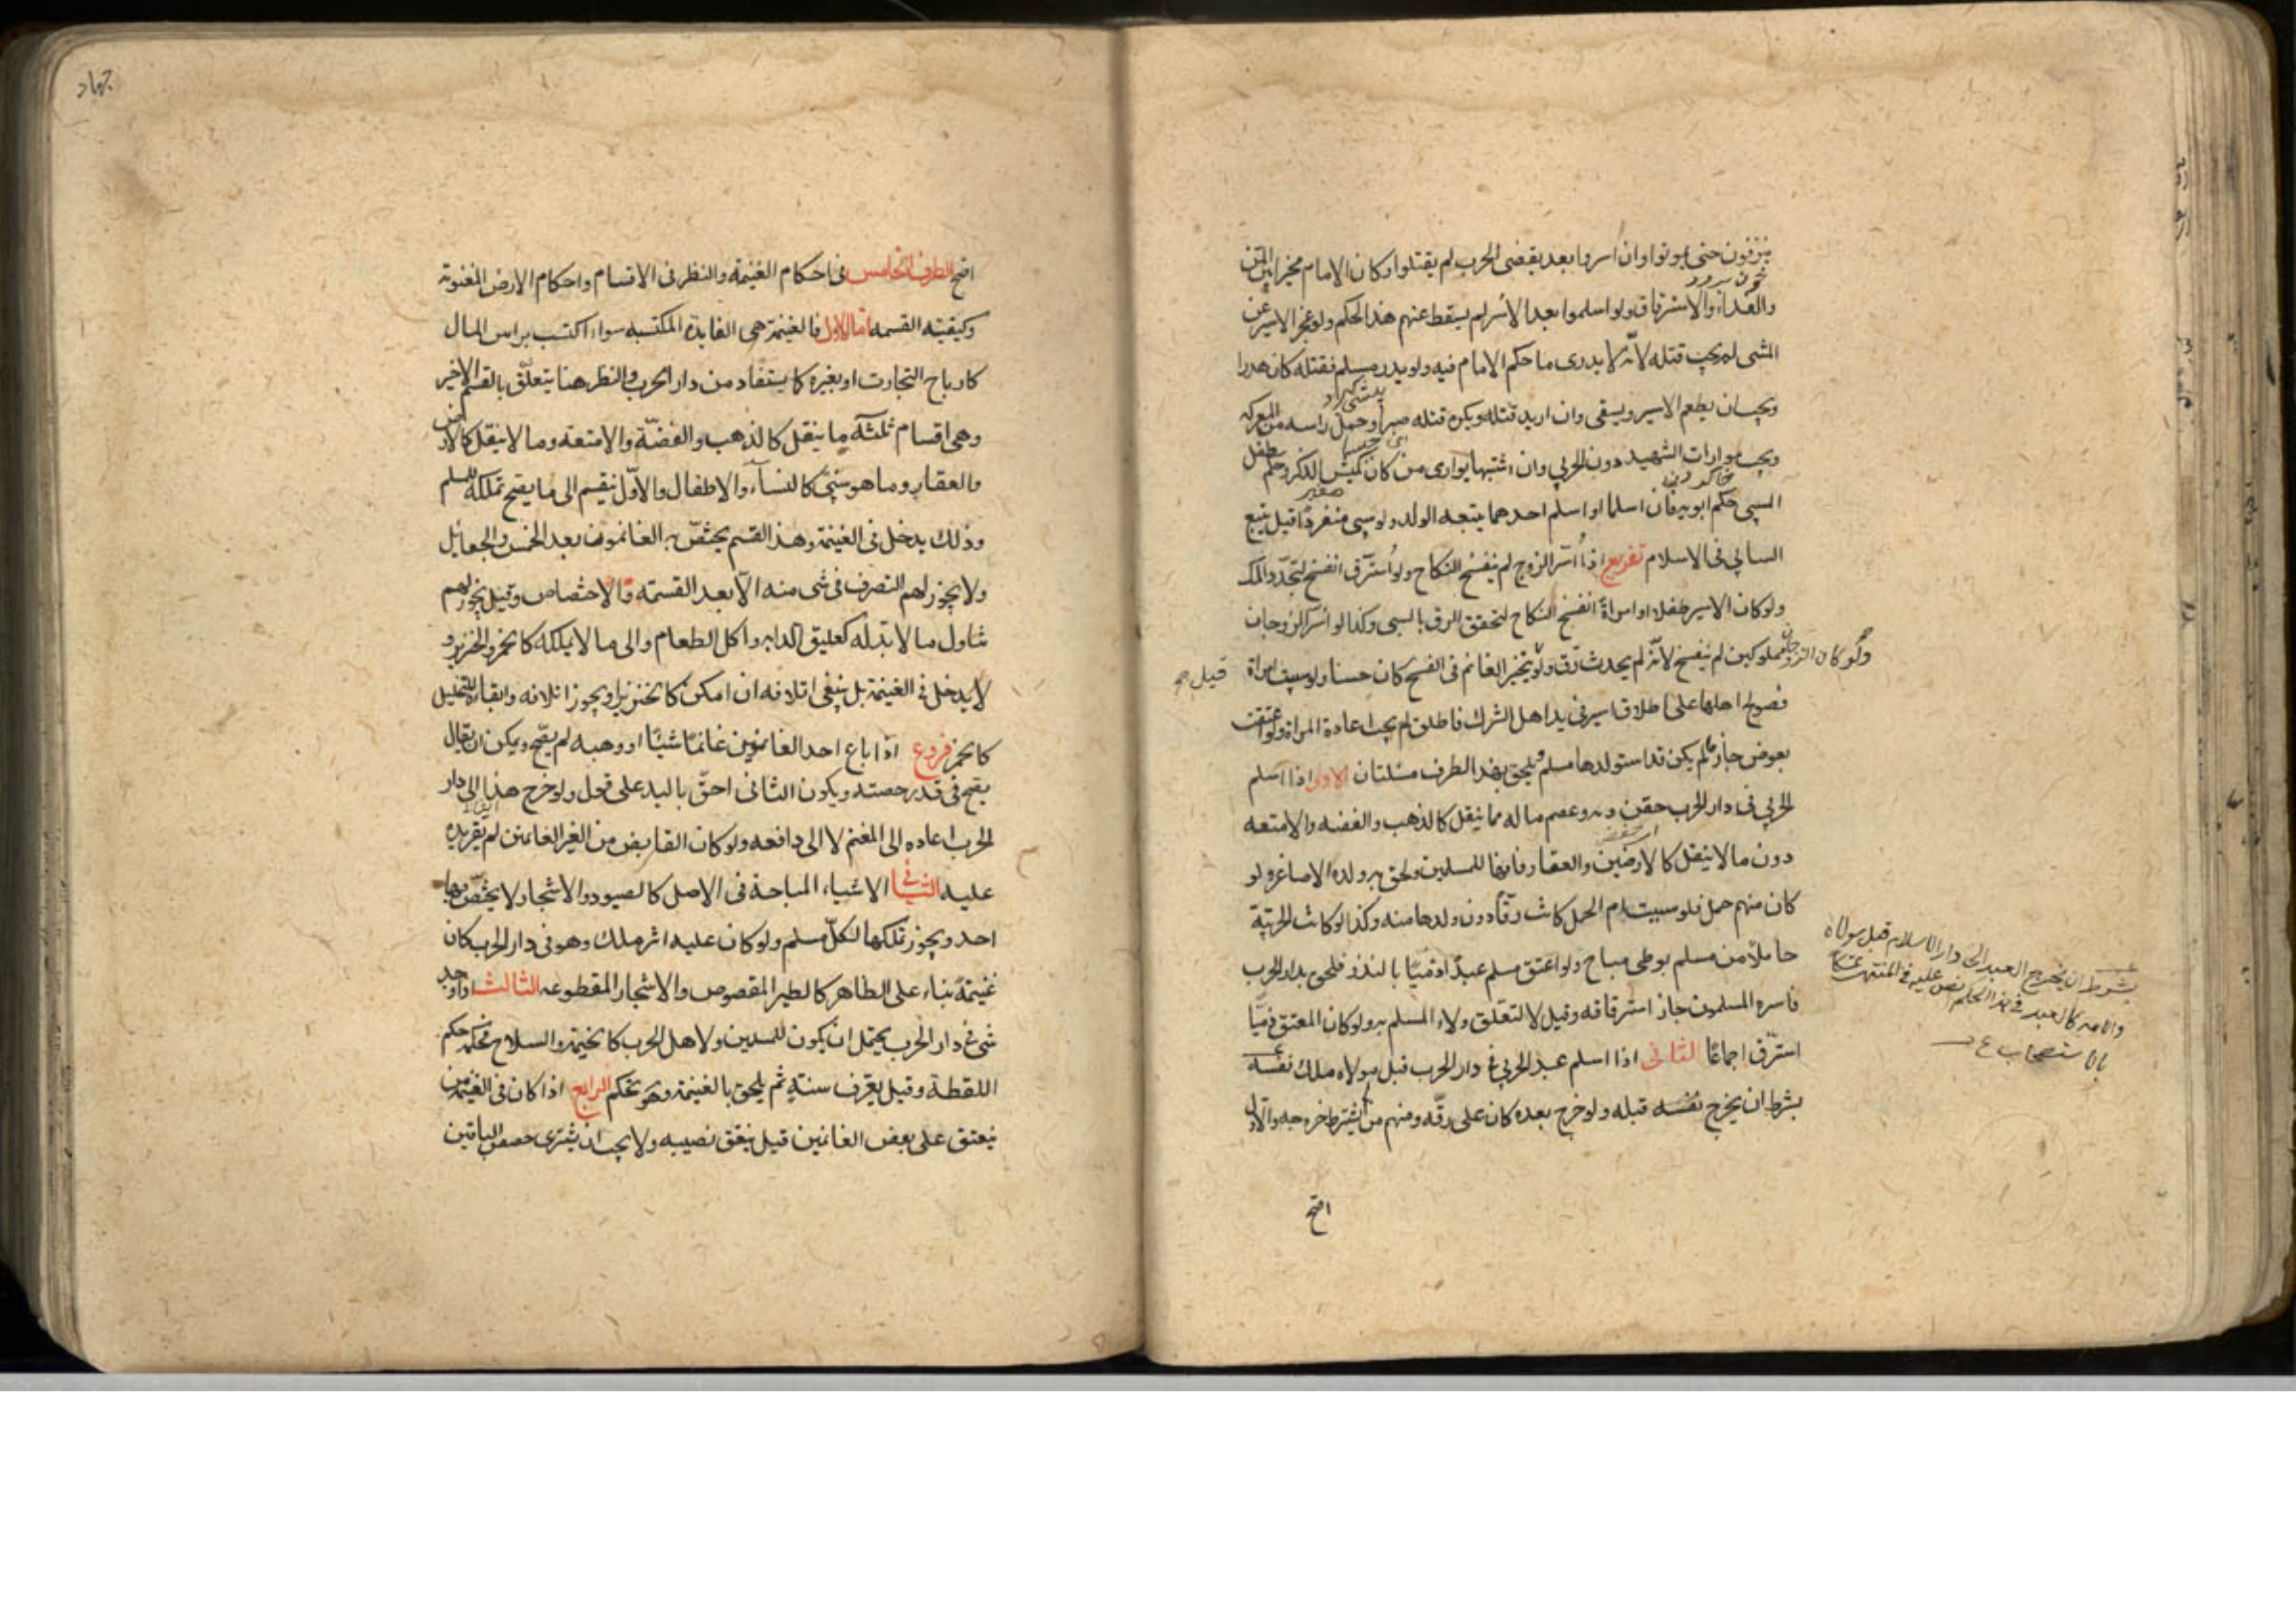 ينزفون حتى يموتوا وان اسروا بعد يقضى الحرب لم يقتلوا وكان الامام مخيرا بين المن
والفداء والاسترقاق ولو اسلموا بعد الاسر لم يسقط عنهم هذا الحكم ولو عجز الاسير عن
المشى لم يجب قتله لانه لا يدرى ما حكم الامام فيه ولو بدر مسلم فقتله كان هدرا
ويجب ان يطعم الاسير ويسقى وان اريد قتله ويكره قتله صبرا وحمل راسه من المعركه
ويجب موارات الشهيد دون الحربي وان اشتبها يوارى من كان كميش الذكر وحكم طفل
المسبى حكم ابويه فان اسلما او اسلم احدهما يتبعه الولد ولو سبى منفردا قيل يتبع
السابي فى الاسلام تفريع اذا اسر الزوج لم ينفسخ النكاح ولو استرق انفسخ لتجدد الملك
ولو كان الاسير طفلا او امراة انفسخ النكاح لتحقق الرق بالسبى وكذا لو اسر الزوجان
ولو كان الزوجان مملوكين لم ينفسخ لانه لم يحدث رق ولو تخير الغانم فى الفسخ كان حسنا ولو سبيت امراة
قيل
فصولح اهلها على اطلاق اسير فى يد اهل الشرك فاطلق لم يجب اعادة المراة ولو اعتقت
بعوض جاز ما لم يكن قد استولدها مسلم ويلحق بهذا الطرف مسئلتان الاولى اذا اسلم
الحربي فى دار الحرب حقن دمه وعصم ماله مما ينقل كالذهب والفضه والامتعه
دون ما لا ينقل كالارضين والعقار فانها للمسلمين ولحق به ولده الاصاغر ولو
كان منهم حمل فلو سبيت ام الحمل كانت رقا دون ولدها منه وكذا لو كانت الحربية
حاملا من مسلم بوطى مباح ولو اعتق مسلم عبدا ذميا بالنذر فلحق بدار الحرب
فاسره المسلمون جاز استرقاقه وقيل لا لتعلق ولاء المسلم به ولو كان المعتق ذميا
استرق اجماعا الثانى اذا اسلم عبد الحربي فى دار الحرب قبل مولاه ملك نفسه
بشرط ان يخرج نفسه قبله ولو خرج بعده كان على رقه ومنهم من لم يشترط خروجه والاول
اصح
بشرط ان يخرج العبد الى دار الاسلام قبل مولاه
والامه كالعبد فى هذا الحكم نص عليه فى المنتهى
جهاد
اصح الطرف الخامس فى احكام الغنيمة والنظر فى الاقسام واحكام الارض المفتوحة
وكيفيته القسمه اما الاول فالغنيمة هى الفايدة المكتسبه سواء اكتسب براس المال
كارباح التجارت او بغيره كما يستفاد من دار الحرب والنظر هنا يتعلق بالقسم الاخير
وهى اقسام ثلثة ما ينقل كالذهب والفضة والامتعه وما لا ينقل كالارض
والعقار وما هو سبى كالنساء والاطفال والاول ينقسم الى ما يصح تملكه للمسلم
وذلك يدخل فى الغنيمة وهذا القسم يختص به الغانمون بعد الخمس والجعايل
ولا يجوز لهم التصرف فى شى منه الا بعد القسمة والاختصاص وقيل يجوز لهم
تناول ما لا بد له كعليق الدابه واكل الطعام والى ما لا يملكه كالخمر والخنزير و
لا يدخل فى الغنيمة بل ينبغى اتلافه ان امكن كالخنزير او يجوز اتلافه وابقاءه للتخليل
كالخمر فروع اذا باع احد الغانمين غانما شيئا او وهبه لم يصح ويمكن ان يقال
يصح فى قدر حصته ويكون الثانى احق باليد على قول ولو خرج هذا الى دار
الحرب اعاده الى المغنم لا الى دافعه ولو كان القابض من الغير الغانمين لم يقر يده
عليه الثانى الاشياء المباحة فى الاصل كالصيود والاشجار لا يختص بها
احد ويجوز تملكها لكل مسلم ولو كان عليه اثر ملك وهو فى دار الحرب كان
غنيمة بناء على الظاهر كالطير المقصوص والاشجار المقطوعه الثالث لو وجد
شى فى دار الحرب يحتمل ان يكون للمسلمين ولاهل الحرب كالخيمة والسلاح فحكمه حكم
اللقطة وقيل يعرف سنة ثم يلحق بالغنيمة وهو تحكم الرابع اذا كان فى الغنيمة من
ينعتق على بعض الغانمين قيل ينعتق نصيبه ولا يجب ان يشترى حصص الباقين